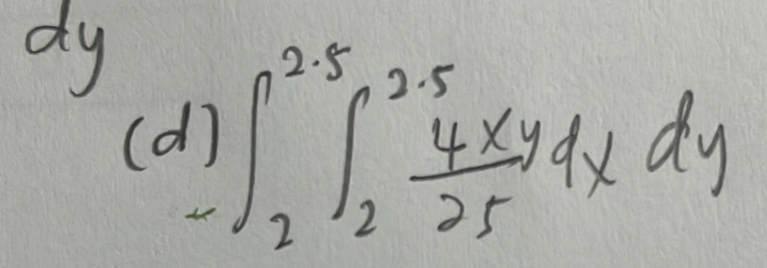 dy
(d) ∫₂^2.5 ∫₂^2.5 4xy/25 dx dy